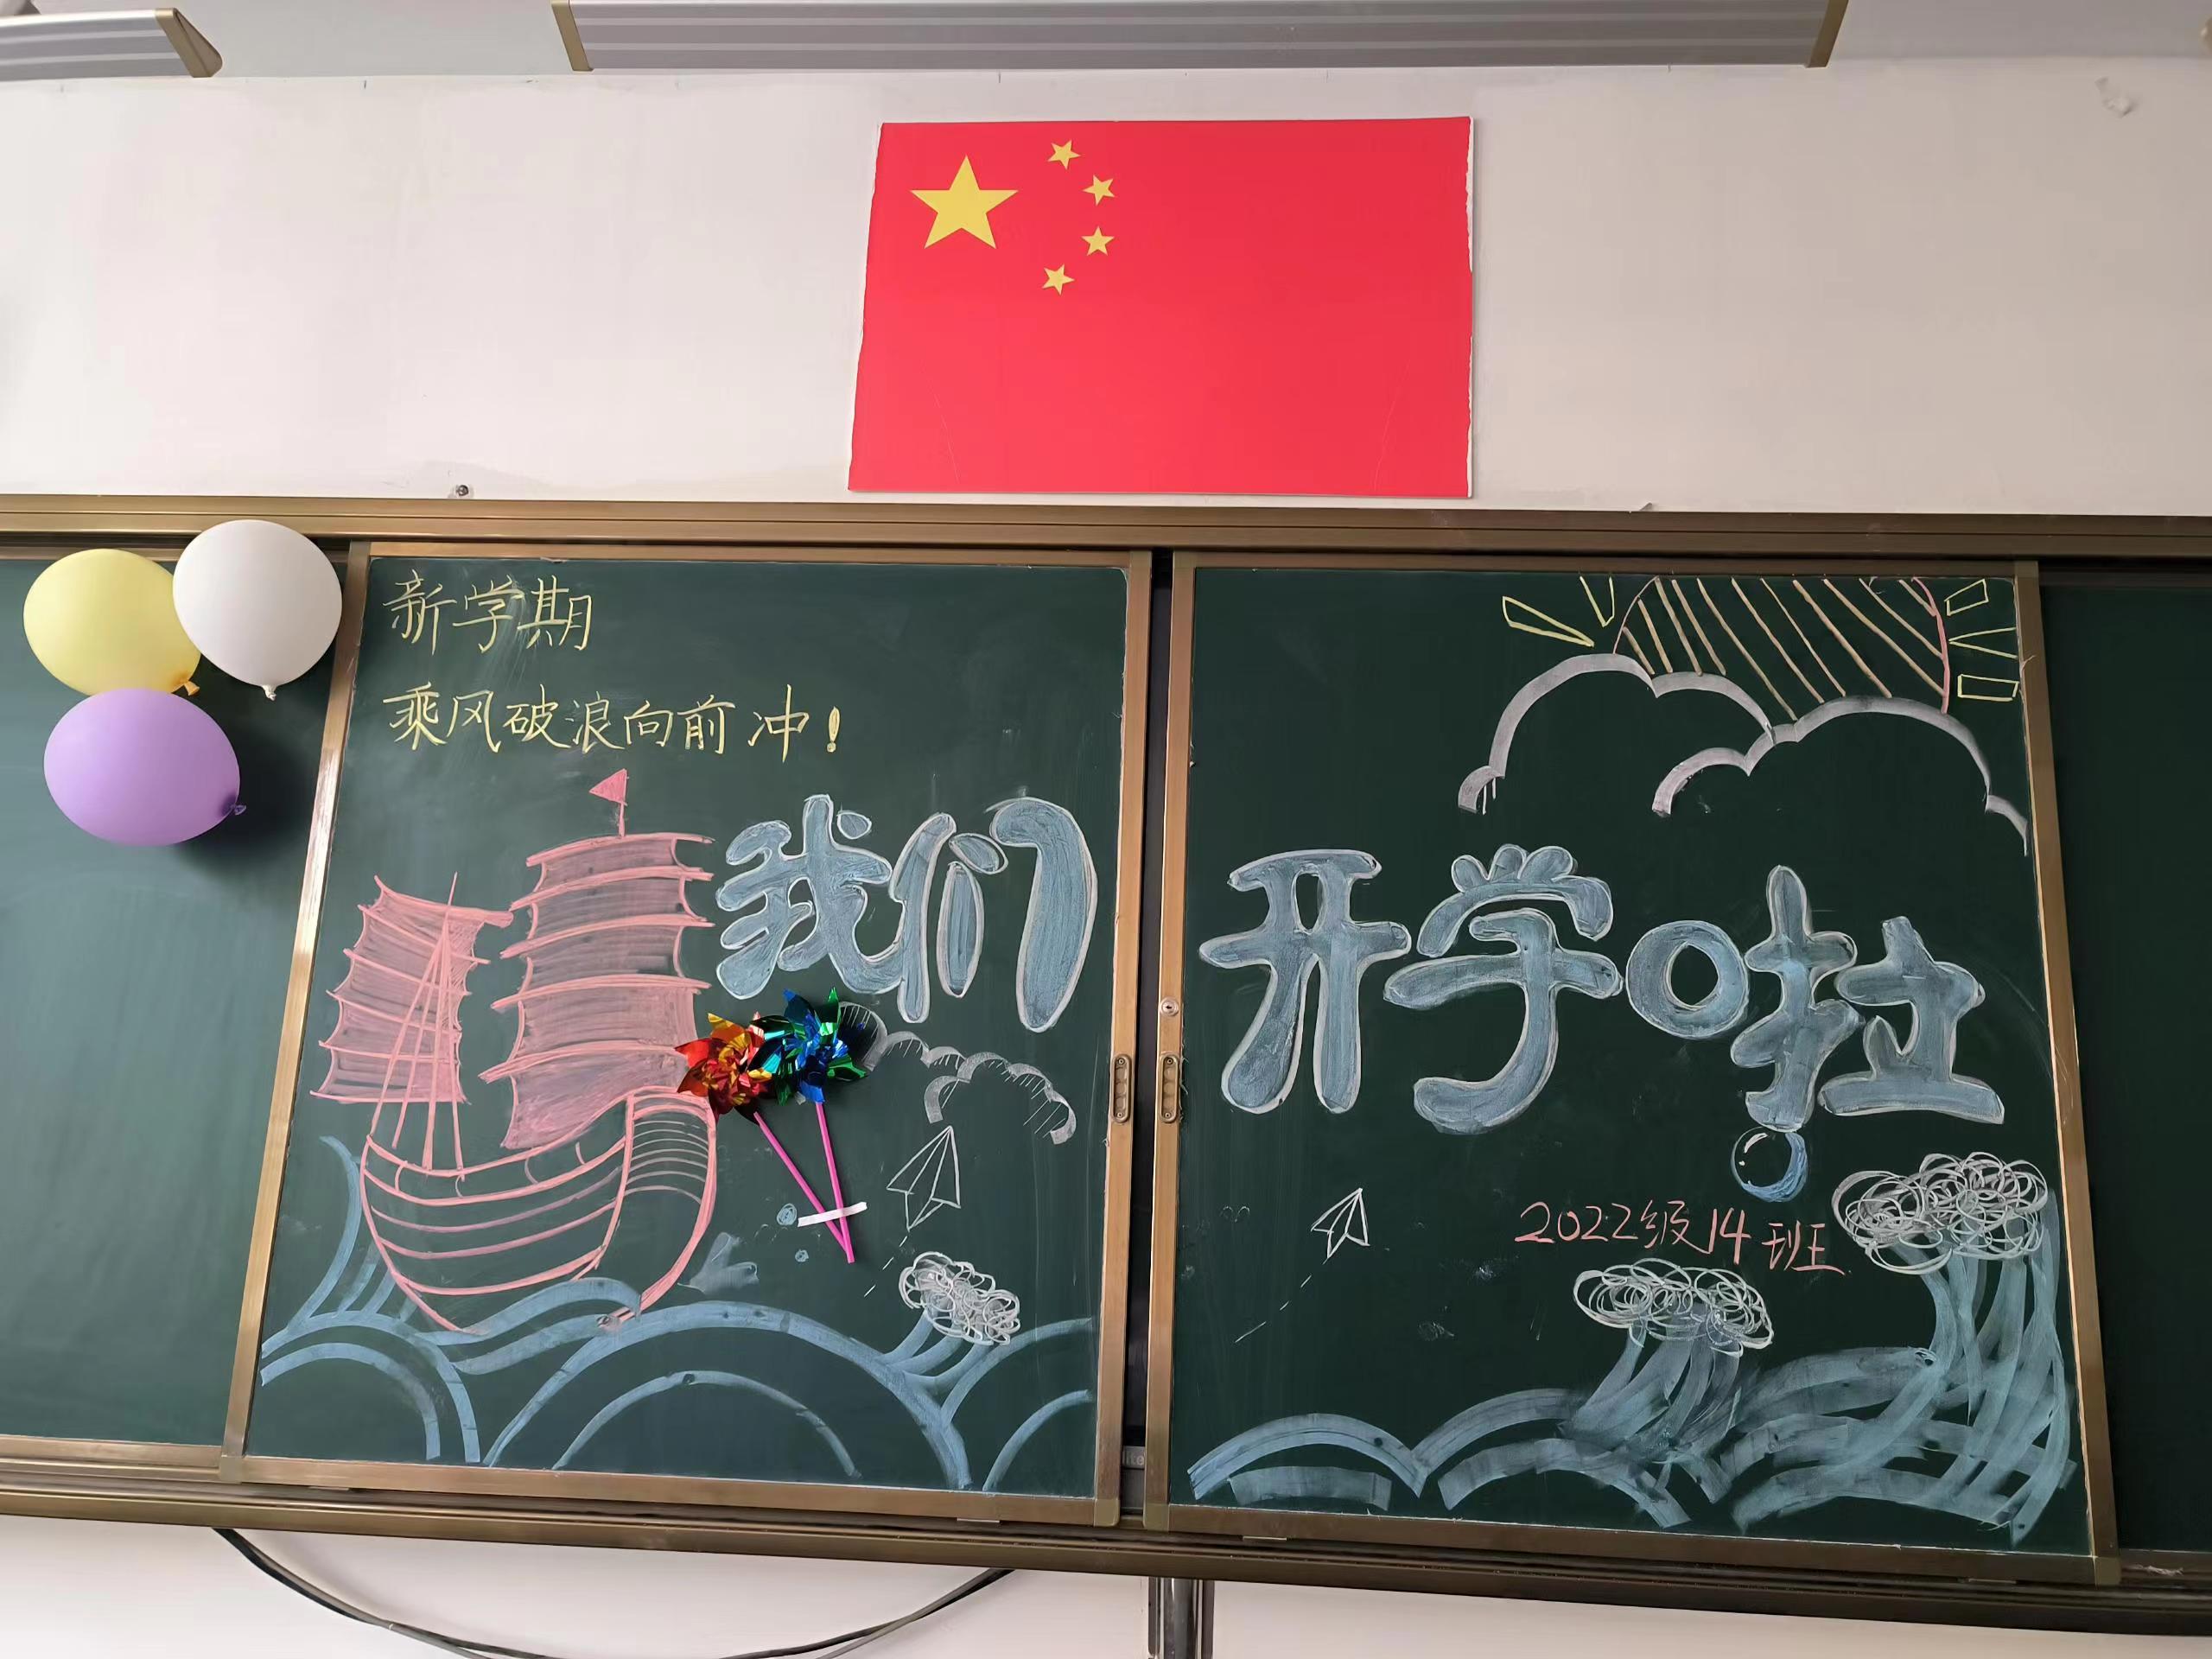 新学期
乘风破浪向前冲！
我们开学啦
2022级14班